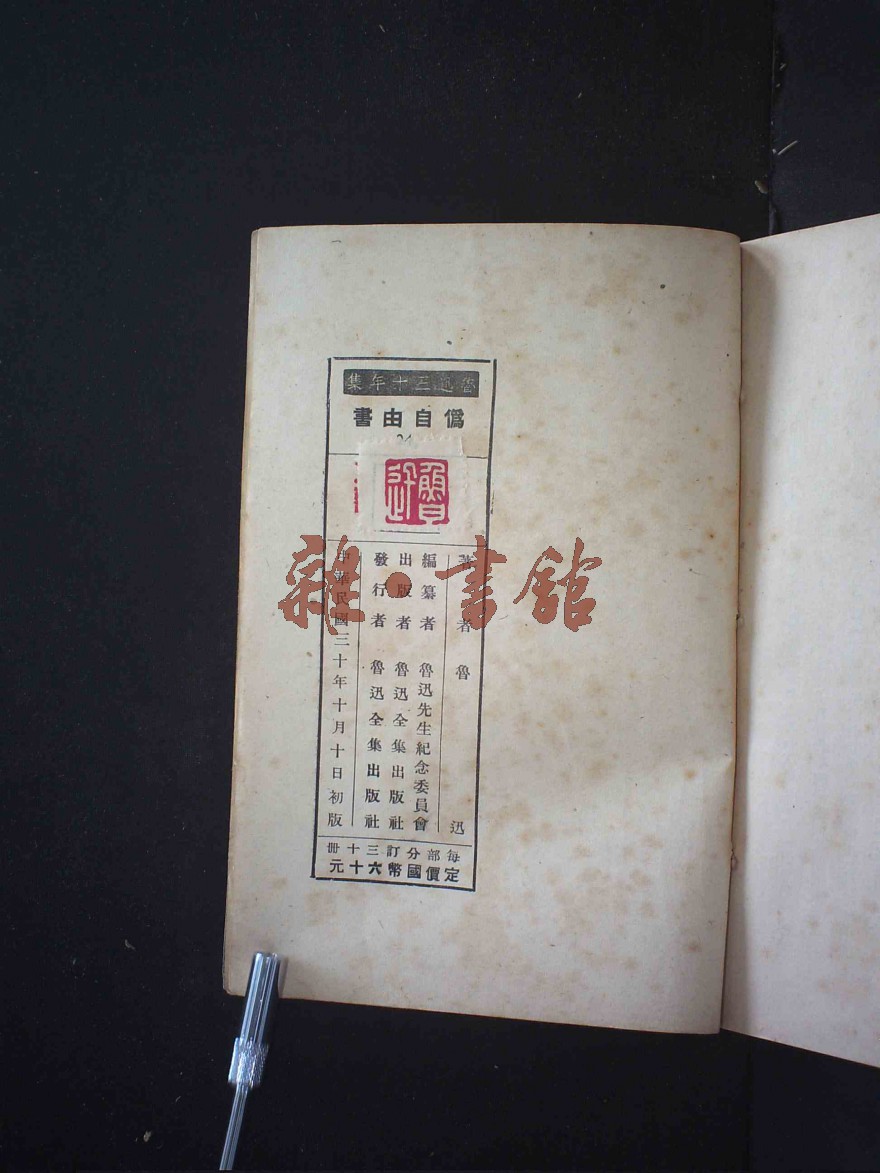 魯迅三十年集
偽自由書
魯迅
著者 魯迅
編纂者 魯迅先生紀念委員會
出版者 魯迅全集出版社
發行者 魯迅全集出版社
中華民國三十年十月十日初版
每部分訂三十冊
定價國幣六十元
雜·書館